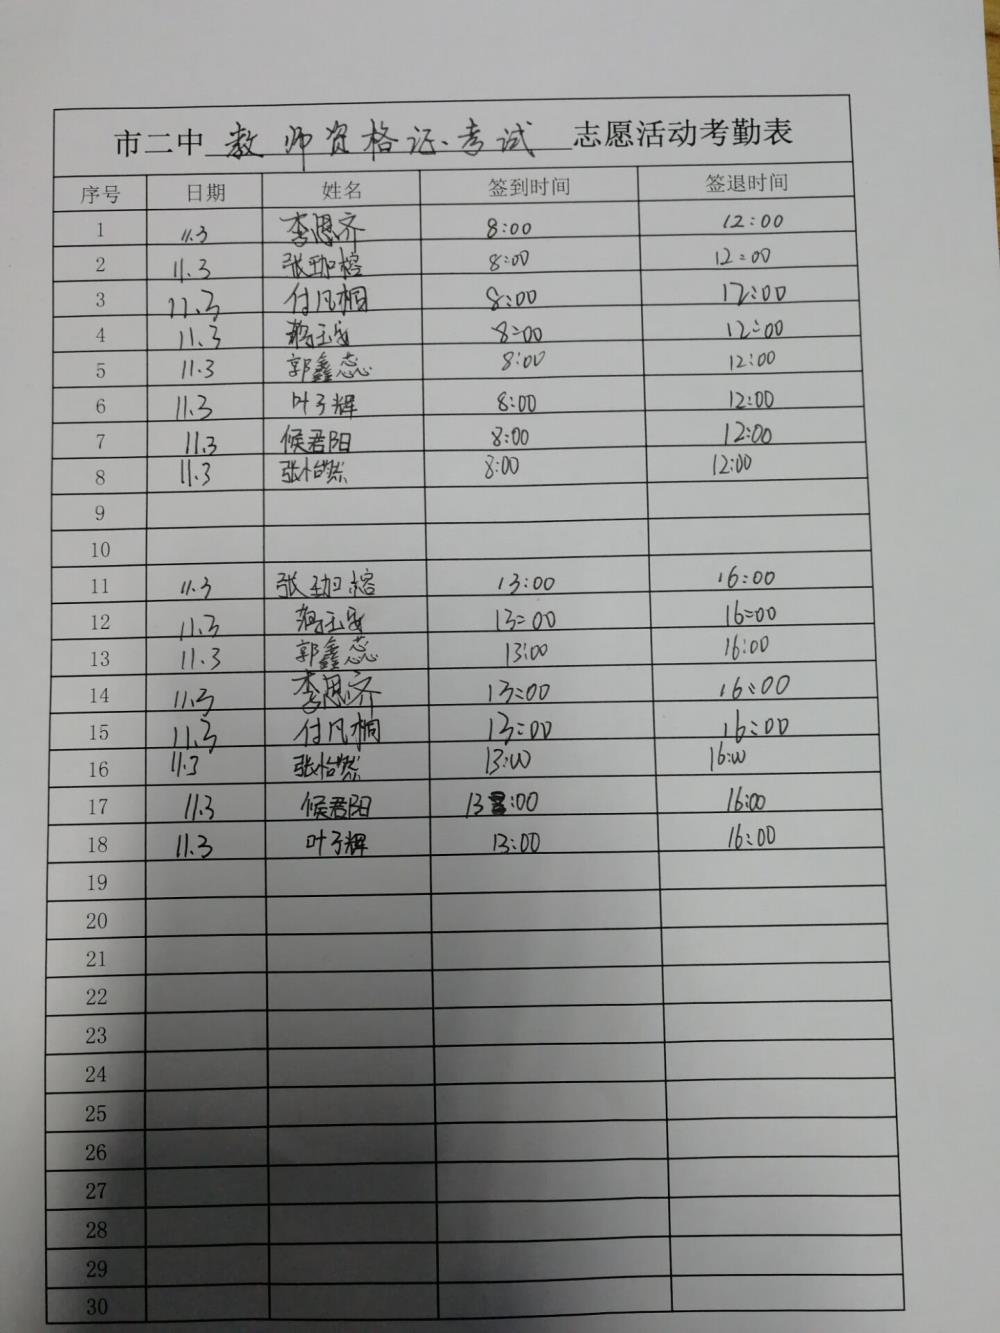 市二中 教师资格证考试 志愿活动考勤表
序号 日期 姓名 签到时间 签退时间
1 11.3 李思齐 8:00 12:00
2 11.3 张珈榕 8:00 12:00
3 11.3 付凡桐 8:00 12:00
4 11.3 8:00 12:00
5 11.3 郭鑫蕊 8:00 12:00
6 11.3 叶子辉 8:00 12:00
7 11.3 候君阳 8:00 12:00
8 11.3 张怡然 8:00 12:00
9
10
11 11.3 张珈榕 13:00 16:00
12 11.3 13:00 16:00
13 11.3 郭鑫蕊 13:00 16:00
14 11.3 李思齐 13:00 16:00
15 11.3 付凡桐 13:00 16:00
16 11.3 张怡然 13:00 16:00
17 11.3 候君阳 13:00 16:00
18 11.3 叶子辉 13:00 16:00
19
20
21
22
23
24
25
26
27
28
29
30